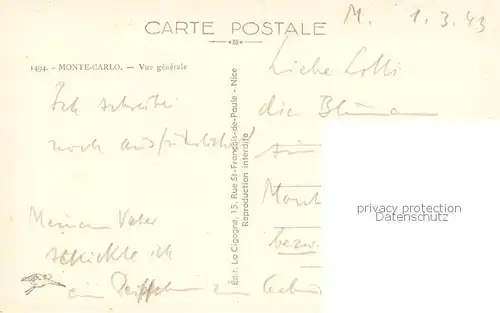 CARTE POSTALE
M. 1.3.43
1494. - MONTE-CARLO. — Vue générale
Ich schreibe
noch ausführlicher!
Meinem Vater
schickte ich
ein zum
Édit. La Cigogne, 15, Rue St-François-de-Paule - Nice
Reproduction interdite
Liebe Lolli
die Blumen
bezw.
privacy protection
Datenschutz